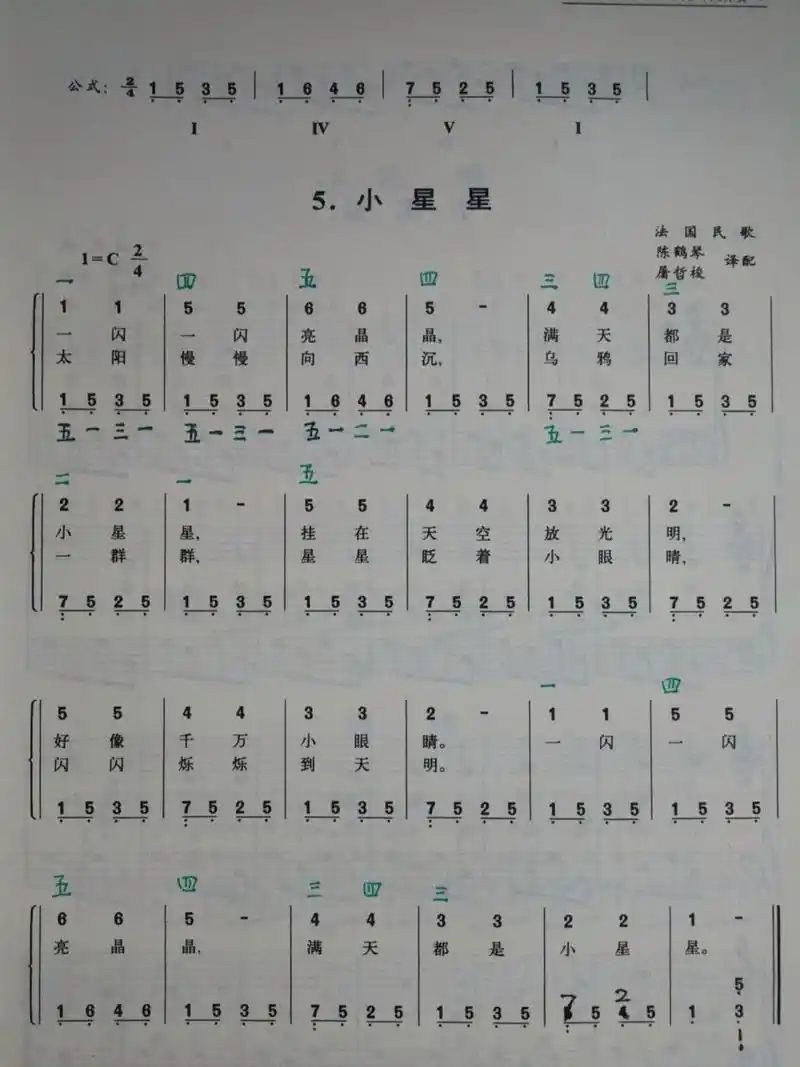 公式: 2/4 1 5 3 5 | 1 6 4 6 | 7 5 2 5 | 1 5 3 5 |
I IV V I
5. 小 星 星
法 国 民 歌
1=C 2/4
陈鹤琴
屠哲梭 译配
一 四 五 四 三 四 三
1 1 | 5 5 | 6 6 | 5 - | 4 4 | 3 3 |
一 闪 一 闪 亮 晶 晶, 满 天 都 是
太 阳 慢 慢 向 西 沉, 乌 鸦 回 家
1 5 3 5 | 1 5 3 5 | 1 6 4 6 | 1 5 3 5 | 7 5 2 5 | 1 5 3 5 |
五 一 三 一 五 一 三 一 五 一 二 一 五 一 三 一
二 一 五
2 2 | 1 - | 5 5 | 4 4 | 3 3 | 2 - |
小 星 星, 挂 在 天 空 放 光 明,
一 群 群, 星 星 眨 着 小 眼 睛,
7 5 2 5 | 1 5 3 5 | 1 5 3 5 | 7 5 2 5 | 1 5 3 5 | 7 5 2 5 |
一 四
5 5 | 4 4 | 3 3 | 2 - | 1 1 | 5 5 |
好 像 千 万 小 眼 睛。 一 闪 一 闪
闪 闪 烁 烁 到 天 明。
1 5 3 5 | 7 5 2 5 | 1 5 3 5 | 7 5 2 5 | 1 5 3 5 | 1 5 3 5 |
五 四 三 四 三
6 6 | 5 - | 4 4 | 3 3 | 2 2 | 1 - ‖
亮 晶 晶, 满 天 都 是 小 星 星。
1 6 4 6 | 1 5 3 5 | 7 5 2 5 | 1 5 3 5 | 7 5 2 5 | 1 5 3 1 ‖